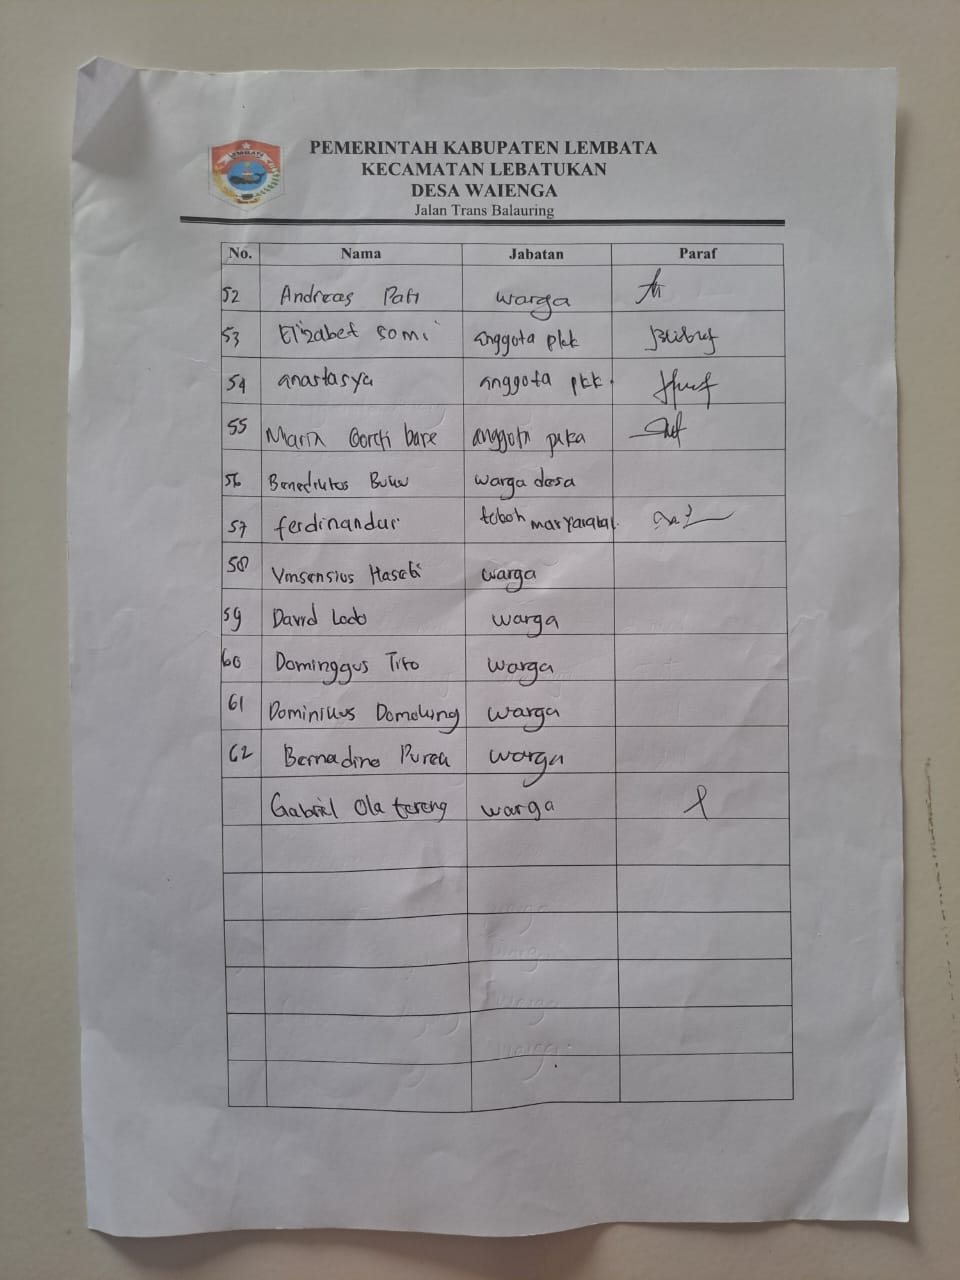 LEMBATA
PEMERINTAH KABUPATEN LEMBATA
KECAMATAN LEBATUKAN
DESA WAIENGA
Jalan Trans Balauring
No. Nama Jabatan Paraf
52 Andreas Pati warga
53 Elizabet Somi anggota pkk
54 anastasya anggota pkk.
55 Maria Goreti bare anggota
56 Benediktos warga desa
57 ferdinandus
58 Vinsensius Hasebi warga
59 David Lodo warga
60 Dominggus Tito warga
61 Dominikus Domolung warga
62 Bernadino Pureh warga
Gabriel Ola tereng warga